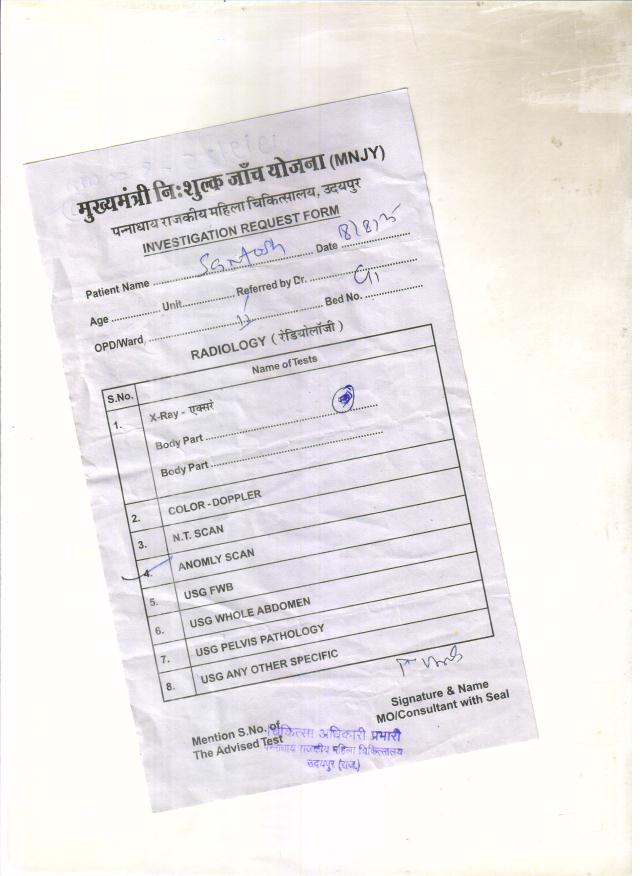 मुख्यमंत्री निःशुल्क जाँच योजना (MNJY)
पन्नाधाय राजकीय महिला चिकित्सालय, उदयपुर
INVESTIGATION REQUEST FORM
Patient Name ........ Santosh ........ Date ........
Age ........ Unit ........ Referred by Dr. ........
OPD/Ward, ........ Bed No. ........
RADIOLOGY ( रेडियोलॉजी )
S.No. Name of Tests
1. X-Ray - एक्सरे
Body Part ........
Body Part ........
2. COLOR - DOPPLER
3. N.T. SCAN
4. ANOMLY SCAN
5. USG FWB
6. USG WHOLE ABDOMEN
7. USG PELVIS PATHOLOGY
8. USG ANY OTHER SPECIFIC
Signature & Name
MO/Consultant with Seal
Mention S.No. of
The Advised Test
चिकित्सा अधिकारी प्रभारी
पन्नाधाय राजकीय महिला चिकित्सालय
उदयपुर (राज.)